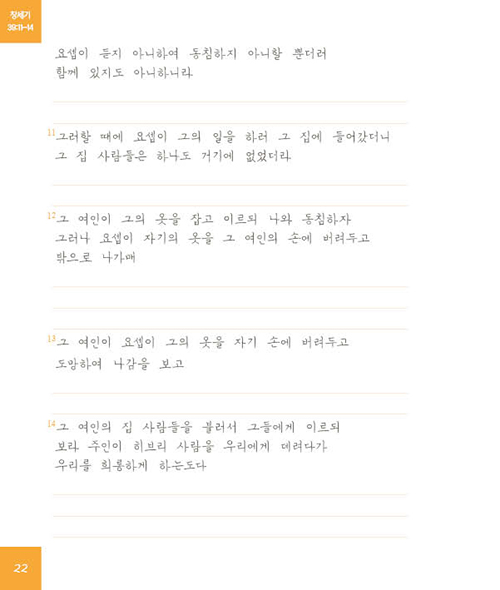 창세기
39:11-14
요셉이 듣지 아니하여 동침하지 아니할 뿐더러
함께 있지도 아니하니라
11 그러할 때에 요셉이 그의 일을 하러 그 집에 들어갔더니
그 집 사람들은 하나도 거기에 없었더라
12 그 여인이 그의 옷을 잡고 이르되 나와 동침하자
그러나 요셉이 자기의 옷을 그 여인의 손에 버려두고
밖으로 나가매
13 그 여인이 요셉이 그의 옷을 자기 손에 버려두고
도망하여 나감을 보고
14 그 여인의 집 사람들을 불러서 그들에게 이르되
보라 주인이 히브리 사람을 우리에게 데려다가
우리를 희롱하게 하는도다
22